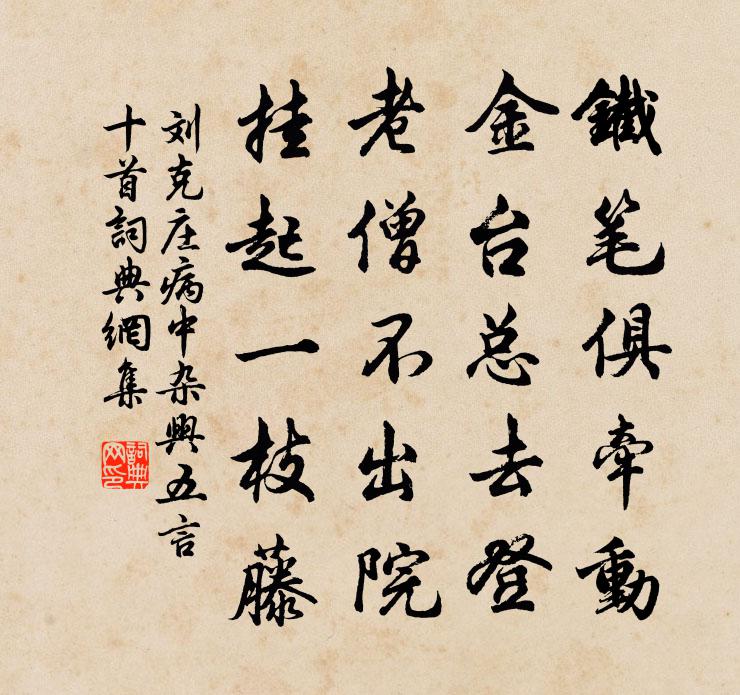 鐵笔俱牵動
金台总去登
老僧不出院
挂起一枝藤
刘克庄病中杂興五言
十首詞典網集
詞典
网印